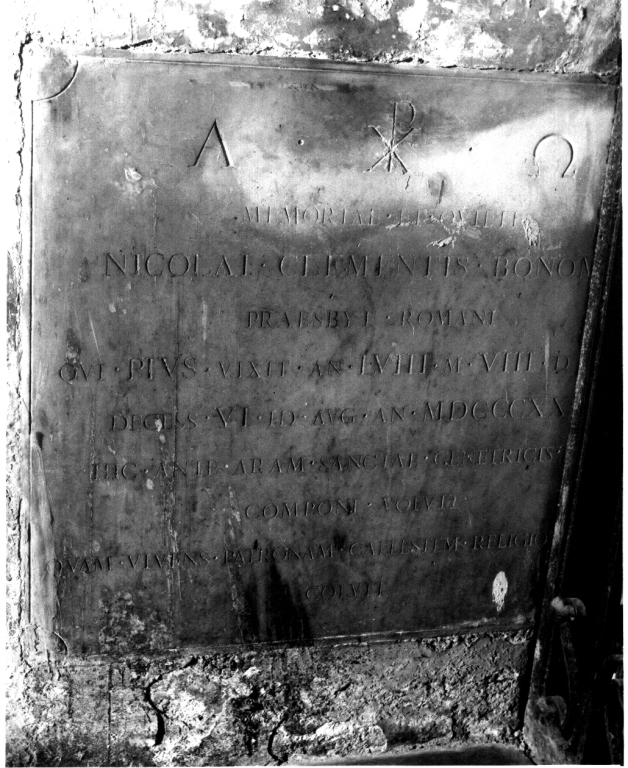 Α · ☧ Ω
MEMORIAE · ET · QVIETI
NICOLAI · CLEMENTIS · BONOM
PRAESBYT · ROMANI
QVI · PIVS · VIXIT · AN · LVIIII · M · VIIII · D
DECESS · VI · ID · AVG · AN · MDCCCXX
HIC · ANTE · ARAM · SANCTAE · GENETRICIS ·
COMPONI · VOLVIT
QVAM · VIVENS · PATRONAM · CAELESTEM · RELIGIO
COLVIT